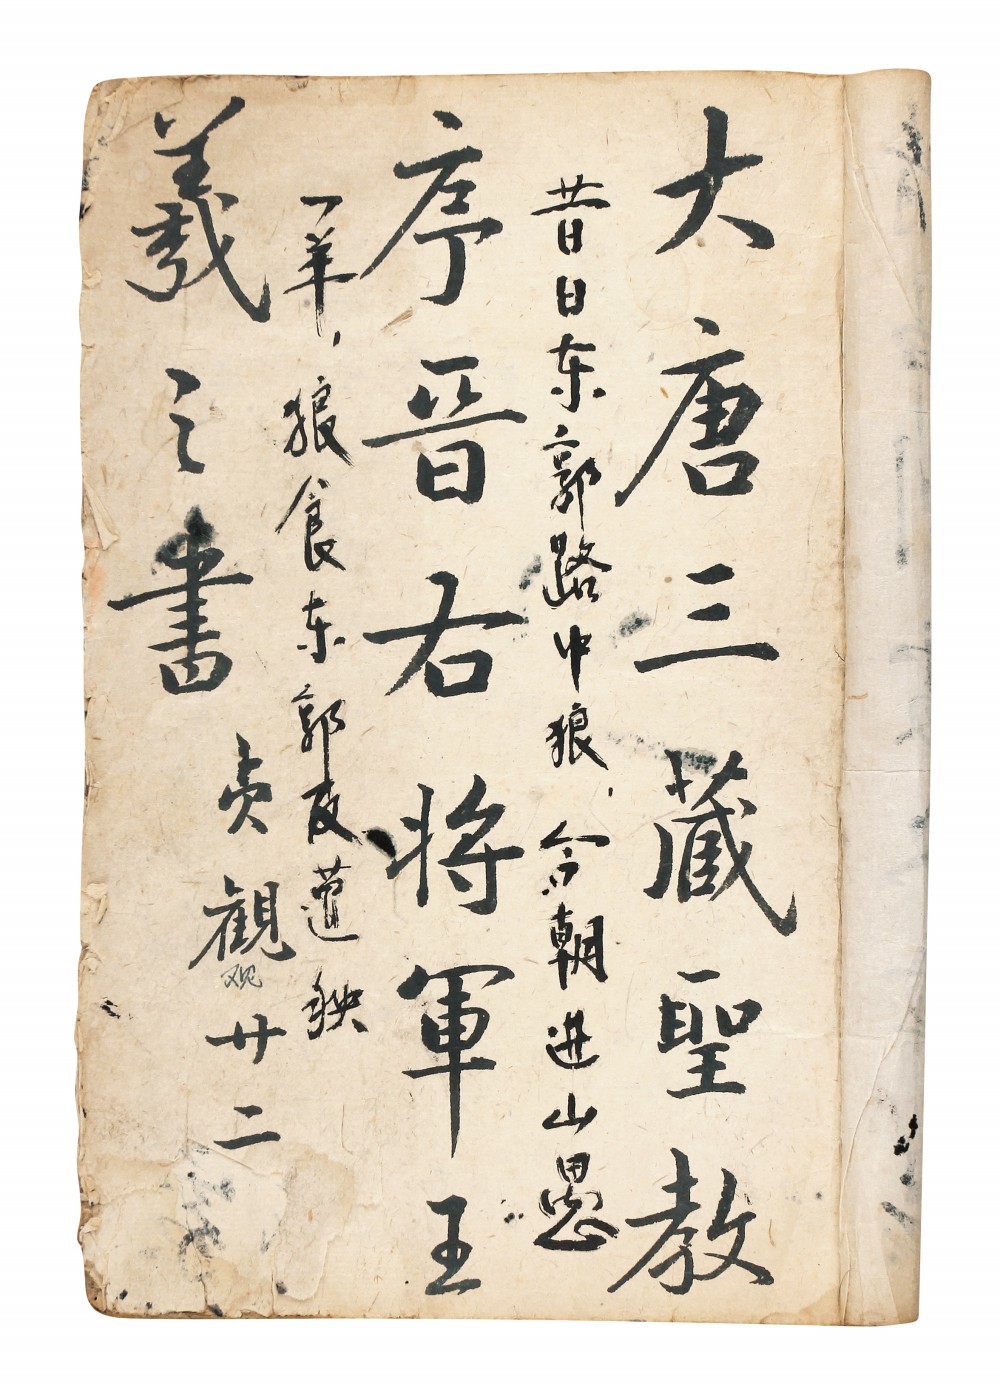 大唐三藏聖教
昔日东郭路中狼，今朝進山愚
序晋右将軍王
一羊，狼食东郭反遭殃
羲之書
贞觀廿二
观